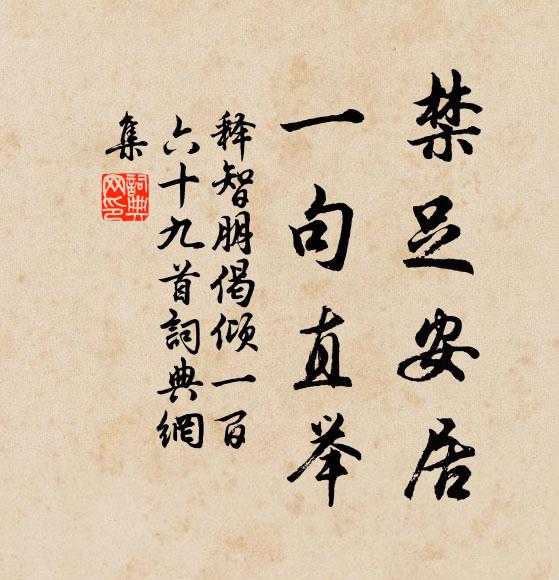 禁足安居
一句直举
释智朋偈倾一百
六十九首詞典網
集
詞典网印